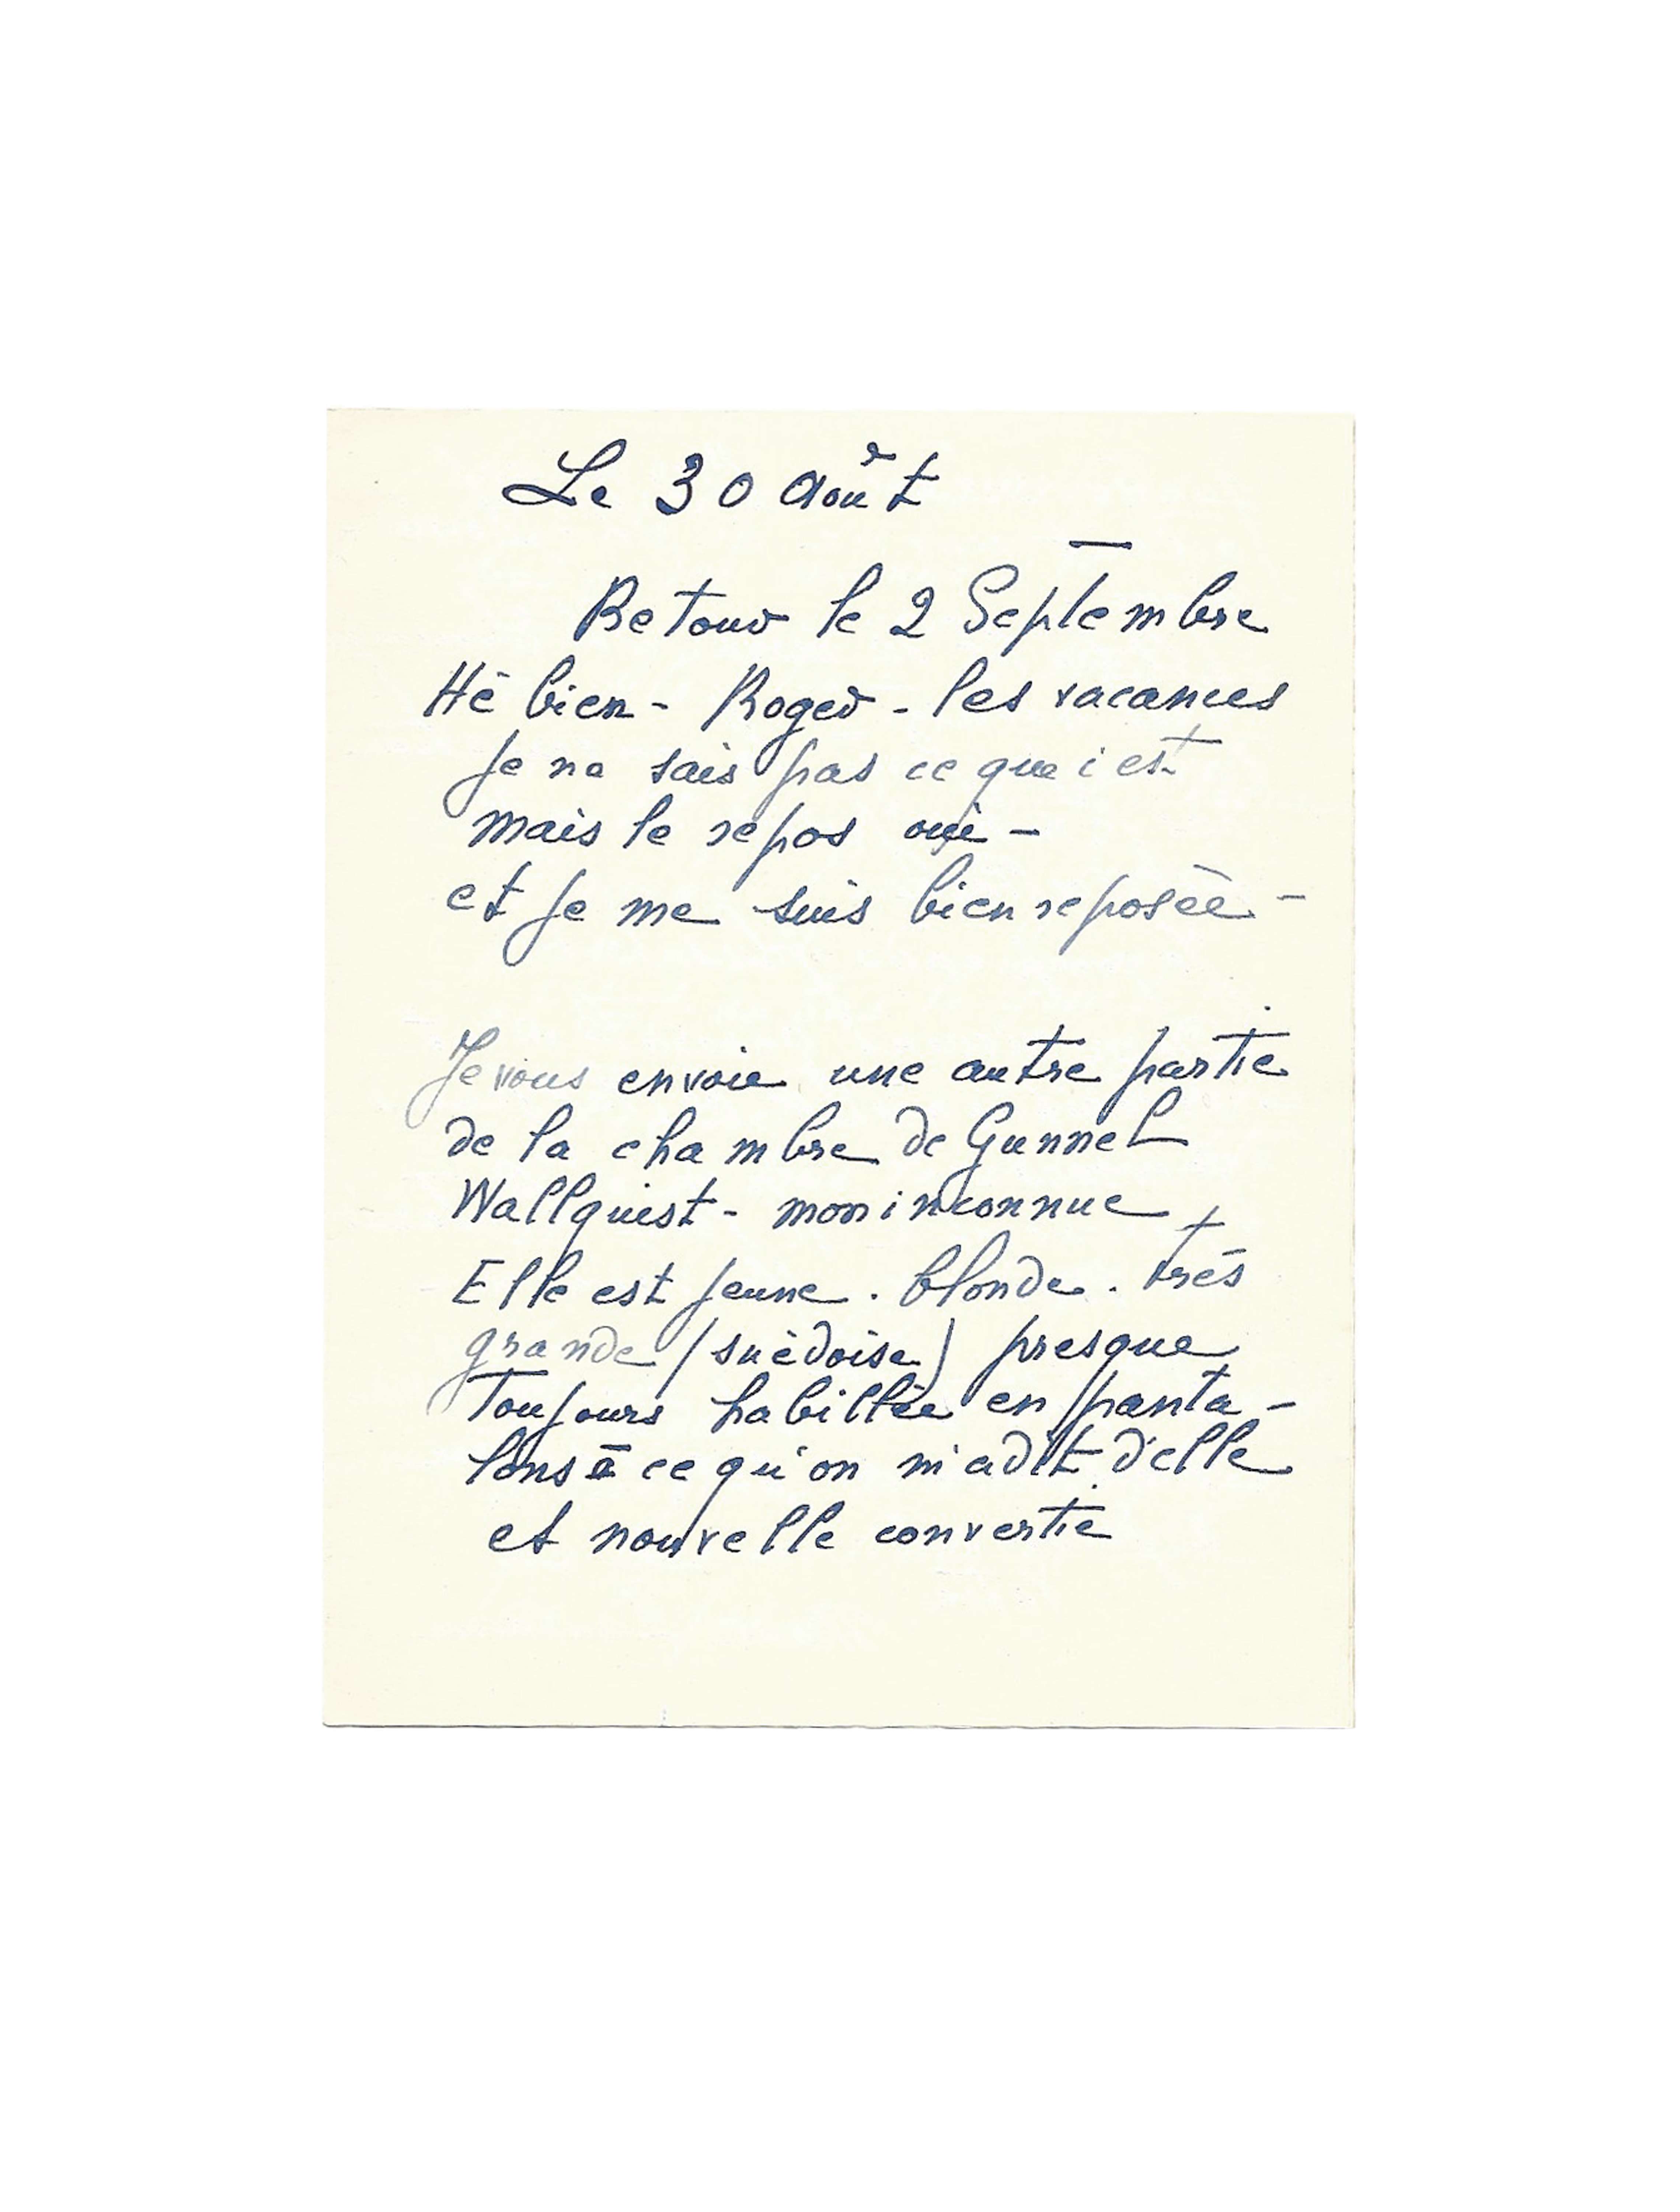 Le 30 Août
—
Retour le 2 Septembre
Hé bien - Roger - les vacances
je ne sais pas ce que c'est
mais le repos oui -
et je me suis bien reposée -
Je vous envoie une autre partie
de la chambre de Gunnel
Wallquist - mon inconnue
Elle est jeune . blonde . très
grande (suédoise) presque
toujours habillée en panta -
lons à ce qu'on m'a dit d'elle
et nouvelle convertie